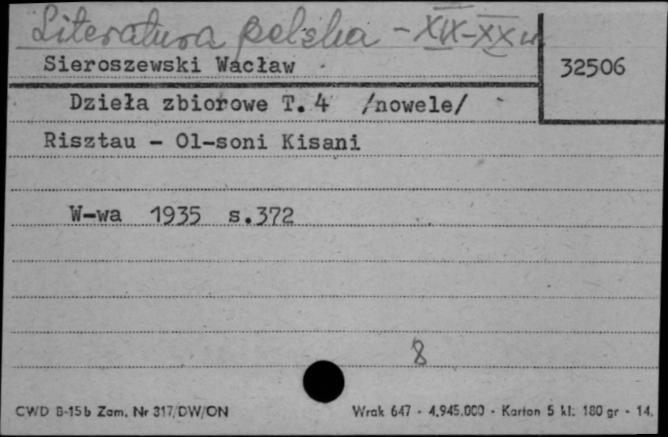 Literatura polska - XIX-XX w
Sieroszewski Wacław
32506
Dzieła zbiorowe T. 4 /nowele/
Risztau - Ol-soni Kisani
W-wa 1935 s.372
8
CWD B-15b Zam. Nr 317/DW/ON
Wrak 647 - 4.945.000 - Karton 5 kl. 180 gr - 14.